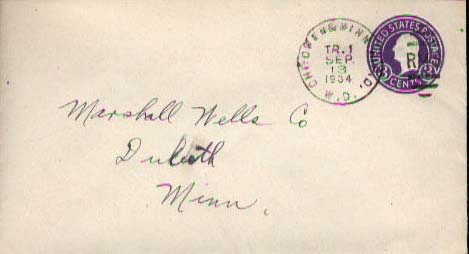 CHI. OWEN & MINN. R.P.O.
TR. 1
SEP
13
1934
W.D.
UNITED STATES POSTAGE
3 CENTS 3
R
Marshall Wells Co
Duluth
Minn.